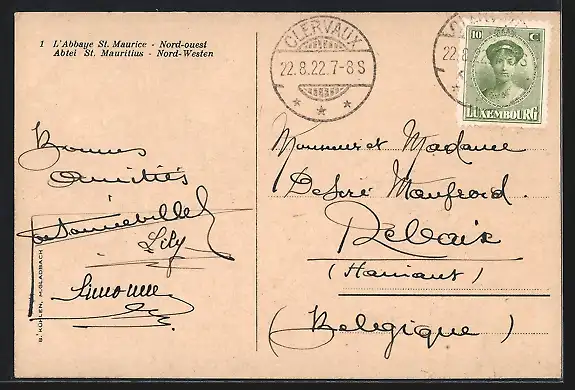 1 L'Abbaye St. Maurice - Nord-ouest
Abtei St. Mauritius - Nord-Westen
Bonnes
Amitiés
Lily
Simonne
B. KÜHLEN, M. GLADBACH
CLERVAUX
22.8.22.7-8 S
10 C
LUXEMBOURG
Monsieur et Madame
Désiré Manfroid.
Rebaix
(Hainaut)
(Belgique)